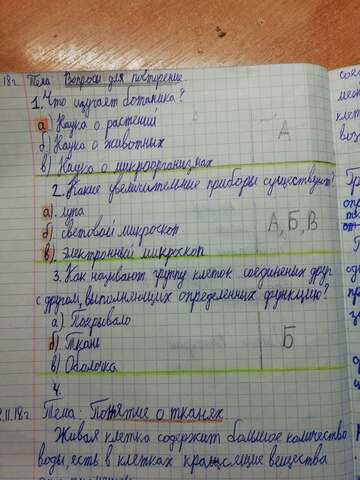 18г. Тема: Вопросы для повторение.
1. Что изучает ботаника?
а) Наука о растений
б) Наука о животных А
в) Наука о микроорганизмах
2. Какие увеличительные приборы существуют?
а). лупа
б). световой микроскоп А, Б, В
в). Электронный микроскоп
3. Как называют группу клеток соединеных друг
с другом, выполняющих определенных функцию?
а) Покрывало
б) Ткань Б
в) Оболочка
4.
.11.18г. Тема: Понятие о тканях
Живая клетка содержит большое количество
воды, есть в клетках красящие вещества